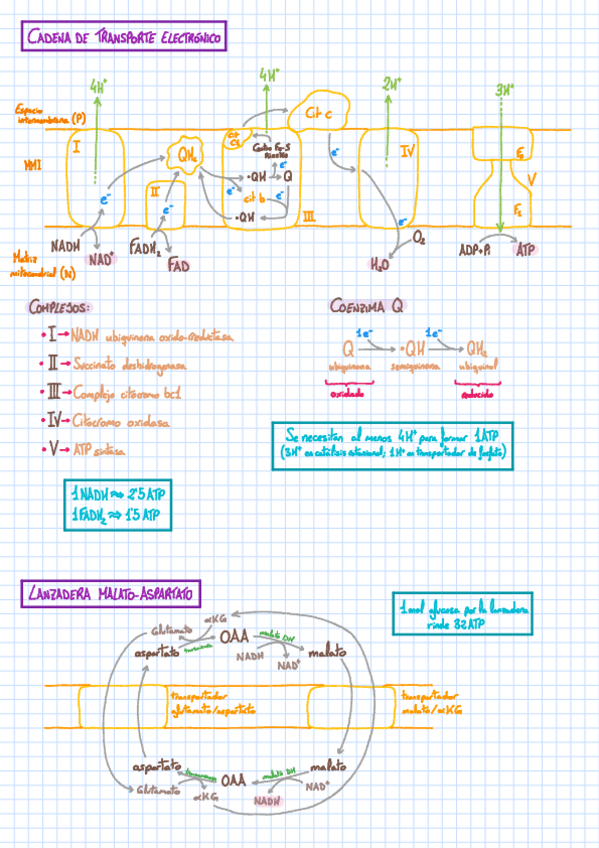 CADENA DE TRANSPORTE ELECTRÓNICO
4H⁺
4H⁺
2H⁺
3H⁺
Espacio
intermembrana (P)
Cit c
I
QH₂
cit
c₁
Centro Fe-S
Rieske
IV
F₀
MMI
II
e⁻
·QH
Q
e⁻
e⁻
cit b
e⁻
·QH
III
V
F₁
e⁻
e⁻
e⁻
NADH
NAD⁺
FADH₂
FAD
H₂O
O₂
ADP+Pi
ATP
Matriz
mitocondrial (N)
COMPLEJOS:
• I → NADH ubiquinona oxido-reductasa
• II → Succinato deshidrogenasa
• III → Complejo citocromo bc1
• IV → Citocromo oxidasa
• V → ATP sintasa
COENZIMA Q
1e⁻
1e⁻
Q
·QH
QH₂
ubiquinona
semiquinona
ubiquinol
oxidado
reducido
Se necesitan al menos 4H⁺ para formar 1ATP
(3H⁺ en catálisis rotacional; 1H⁺ en transportador de fosfato)
1NADH ≈> 2'5 ATP
1FADH₂ ≈> 1'5 ATP
LANZADERA MALATO-ASPARTATO
1mol glucosa por la lanzadera
rinde 32 ATP
αKG
Glutamato
OAA
malato DH
aspartato
NADH
NAD⁺
malato
transportador
glutamato/aspartato
transportador
malato/αKG
aspartato
OAA
malato DH
malato
Glutamato
αKG
NADH
NAD⁺